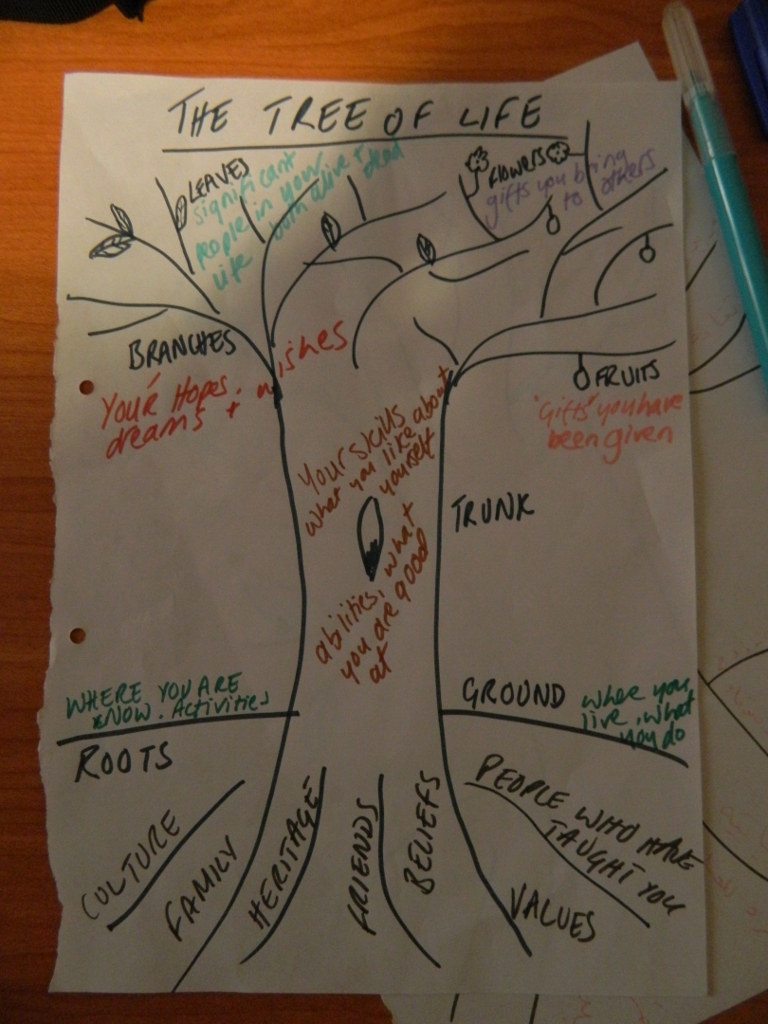 THE TREE OF LIFE
LEAVES
significant
people in your
life both alive + dead
FLOWERS
gifts you bring
to others
BRANCHES
Your Hopes.
dreams + wishes
FRUITS
"Gifts" you have
been given
Your skills
what you like about
yourself
TRUNK
abilities, what
you are good
at
WHERE YOU ARE
NOW. Activities
GROUND
where you
live, what
you do
ROOTS
CULTURE
FAMILY
HERITAGE
FRIENDS
BELIEFS
PEOPLE WHO HAVE
TAUGHT YOU
VALUES